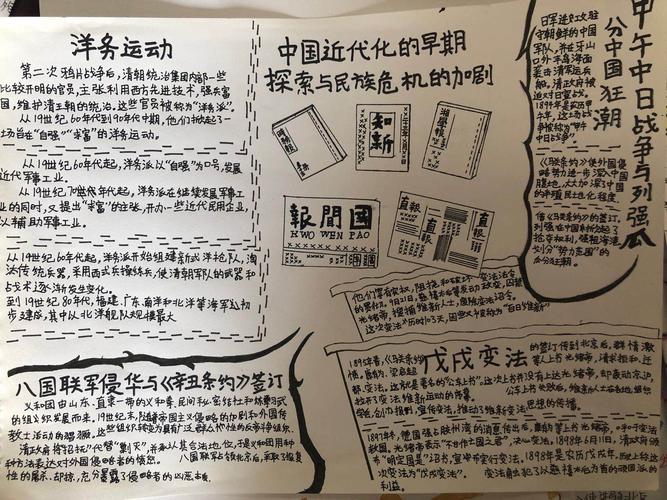 洋务运动
第二次鸦片战争后,清朝统治集团内部一些
比较开明的官员,主张利用西方先进技术,强兵富
国,维护清王朝的统治,这些官员被称为"洋务派"。
从19世纪60年代到90年代中期,他们掀起了一
场旨在"自强""求富"的洋务运动。
从19世纪60年代起,洋务派以"自强"为口号,发展
近代军事工业。
从19世纪70年代起,洋务派在继续发展军事工
业的同时,又提出"求富"的主张,开办一些近代民用企业,
以辅助军事工业。
从19世纪60年代起,洋务派开始组建新式洋枪队,淘
汰传统兵器,采用西式兵操练兵,使清朝军队的武器和
战术逐渐发生变化。
到19世纪80年代,福建、广东、南洋和北洋等海军巡初
步建成,其中以北洋舰队规模最大
中国近代化的早期
探索与民族危机的加剧
知
新
報聞國
KWO WEN PAO
直報
直報
甲午中日战争与列强瓜
分中国狂潮
日军进攻驻
守朝鲜的中国
军队,并在牙山
口外丰岛海面
袭击清军运兵
船。清政府被
迫对日宣战。
1894年是农历甲
午年,这场战
争被称为"甲午
中日战争"。
《马关条约》使外国侵
略势力进一步深入中国
腹地,大大加深了中国
的半殖民地化程度。
《马关条约》的签订,
列强在中国
抢占租
划分"势力范围"的
瓜分狂潮。
他们掌有实权,阻挠和破坏变法法令
9月21日,慈禧太后等发动政变,囚禁
光绪帝,搜捕维新人士,废除变法诏令。
这次变法历时103天,因此又被称为"百日维新"
戊戌变法
1895年春,《马关条约》
的签订传到北京后,群情激
愤,康有为、梁启超
等人上书光绪帝,请求拒和、迁
都、变法,这就是著名的"公车上书"。这次上书并没有上达光绪帝,却轰动京沪,
拉开了变法维新运动的序幕。
公车上书失败后,维新人士在各地组织
学会,创办报刊,宣传变法,推动了维新变法思想的传播。
1897年,德国强占胶州湾的消息传出后,康有为等上书光绪帝,
光绪帝表示"不甘作亡国之君",决心变法,1898年6月11日,清政府颁
布"明定国是"诏书,宣布实行变法。1898年是农历戊戌年,历史上称这
次变法为"戊戌变法"。
变法触犯了以慈禧太后为首的顽固派的
利益。
八国联军侵华与《辛丑条约》签订
义和团由山东、直隶一带的义和拳、民间秘密结社和练拳习武
的组织发展而来。19世纪末,随着帝国主义侵略的加剧和外国传
教士活动的猖獗,这些组织转变为具有广泛群众性的反帝斗争组织。
清政府将"招抚"代替"剿灭",并承认其合法地位,于是义和团用种
种方法表达对外国侵略者的愤怒。
八国联军占领北京后,采取了报复
性的屠杀、劫掠,充分暴露了侵略者的凶恶本质。